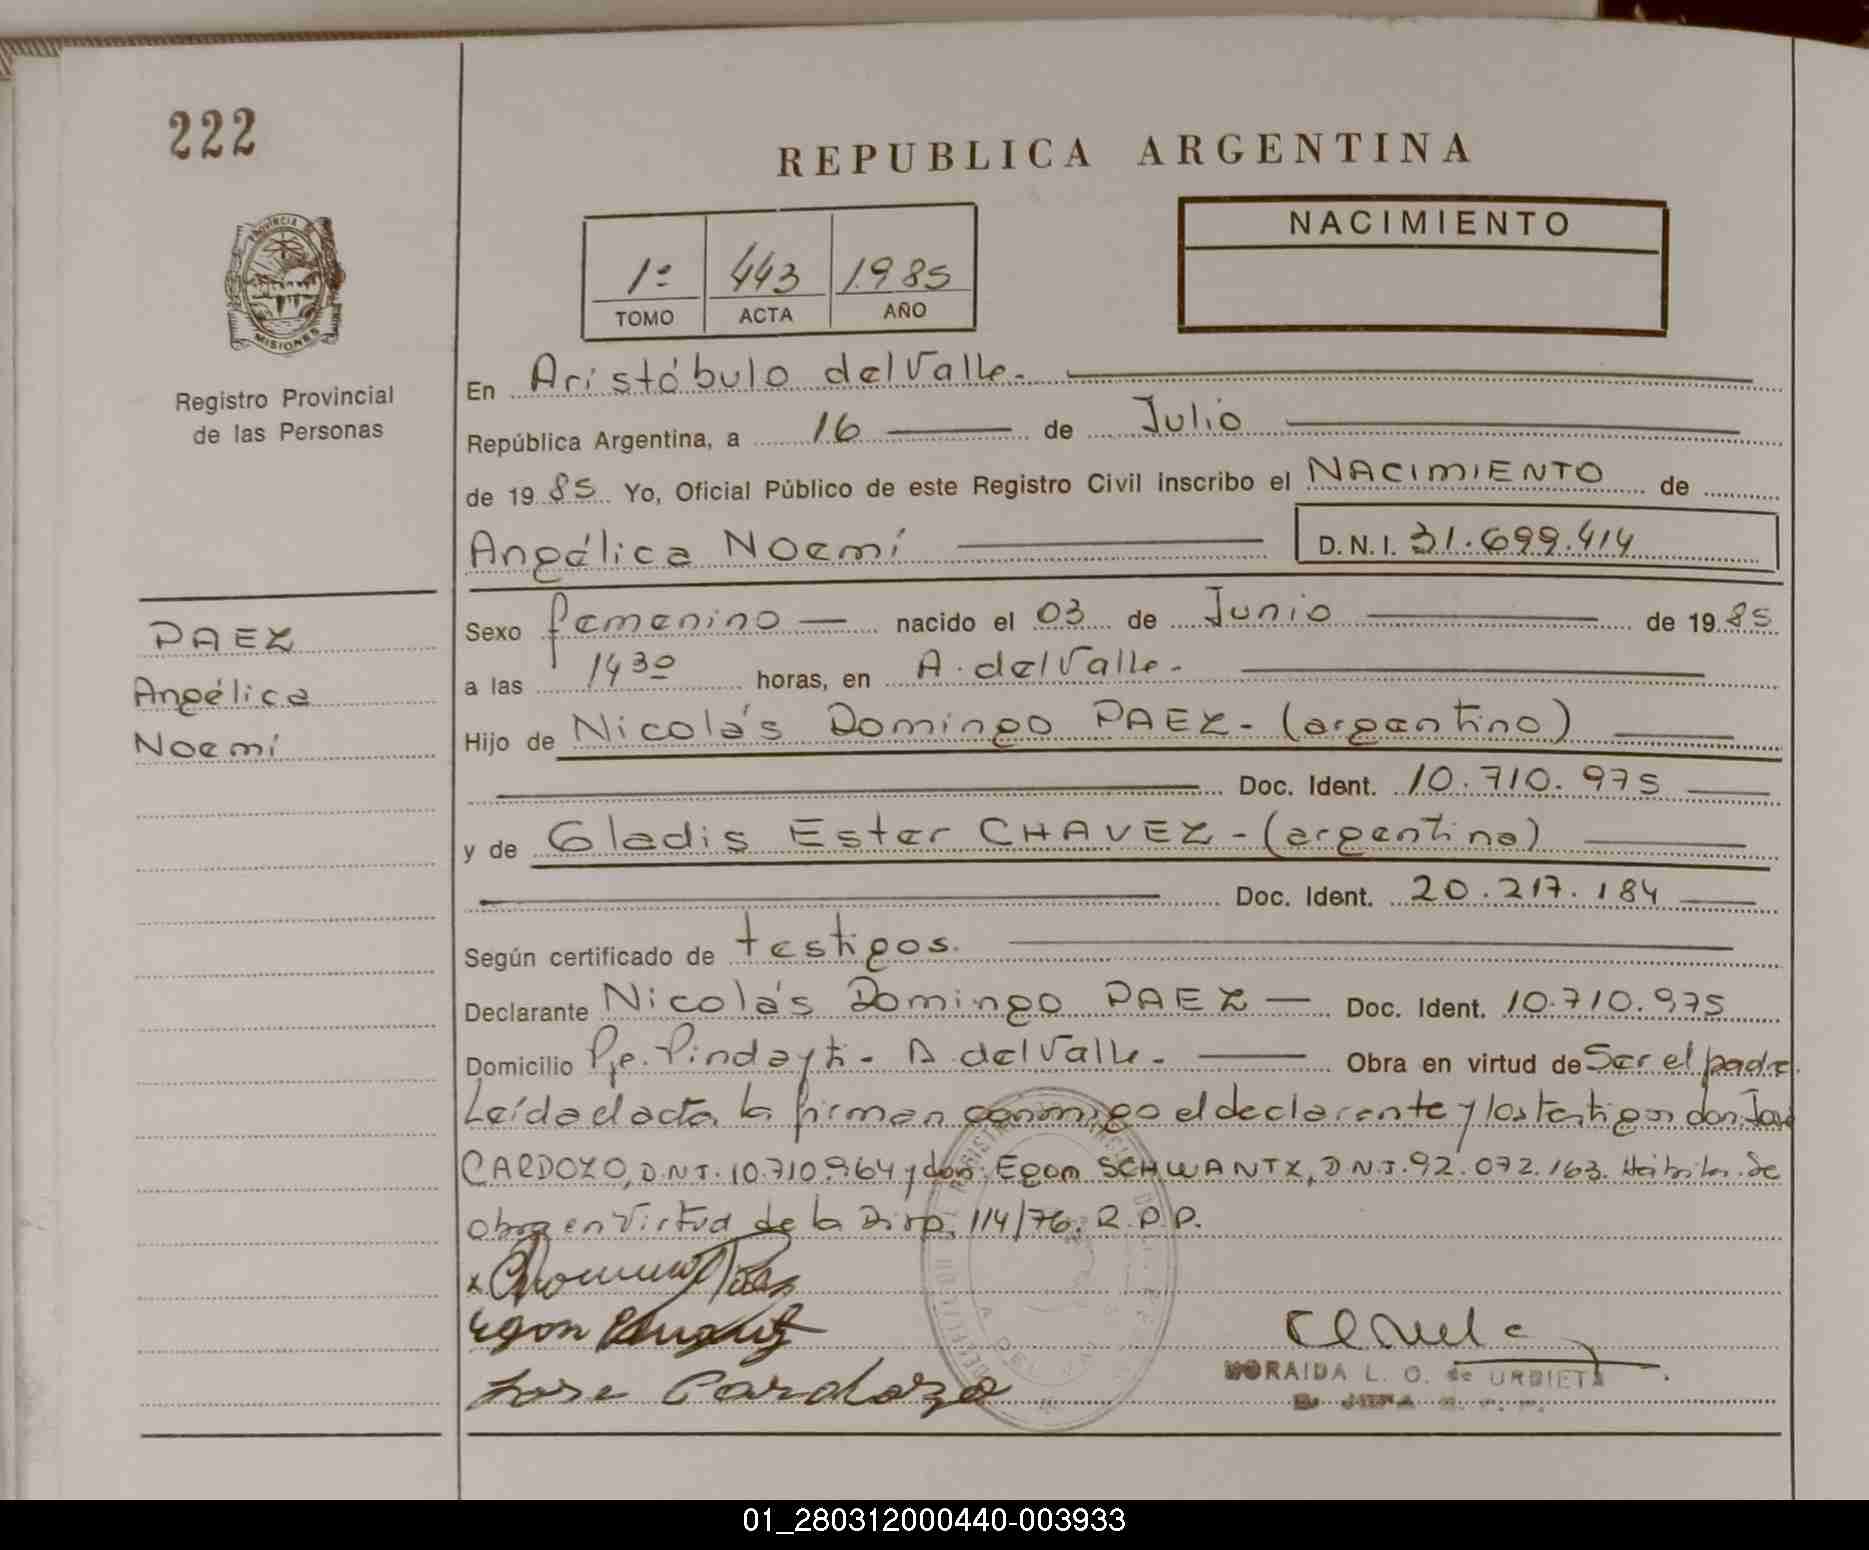 222
REPUBLICA ARGENTINA
PROVINCIA DE
MISIONES
Registro Provincial
de las Personas
1º 443 1985
TOMO ACTA AÑO
NACIMIENTO
En Aristóbulo del Valle.
República Argentina, a 16 de Julio
de 1985 Yo, Oficial Público de este Registro Civil inscribo el NACIMIENTO de
Angélica Noemí D.N.I. 31.699.414
PAEZ
Angélica
Noemí
Sexo femenino nacido el 03 de Junio de 1985
a las 1430 horas, en A. del Valle.
Hijo de Nicolás Domingo PAEZ - (argentino)
Doc. Ident. 10.710.975
y de Gladis Ester CHAVEZ - (argentina)
Doc. Ident. 20.217.184
Según certificado de testigos.
Declarante Nicolás Domingo PAEZ Doc. Ident. 10.710.975
Domicilio Pje. Pindayti - A. del Valle. Obra en virtud de Ser el padre.
Leída el acta la firman conmigo el declarante y los testigos don José
CARDOZO, D.N.I. 10.710.964 y don: Egon SCHWANTZ, D.N.I. 92.072.163. Habilit. Se
obra en Virtud de la Disp. 114/76. R.P.P.
Egon
Jose Cardozo
MORAIDA L. O. de URBIETA
01_280312000440-003933